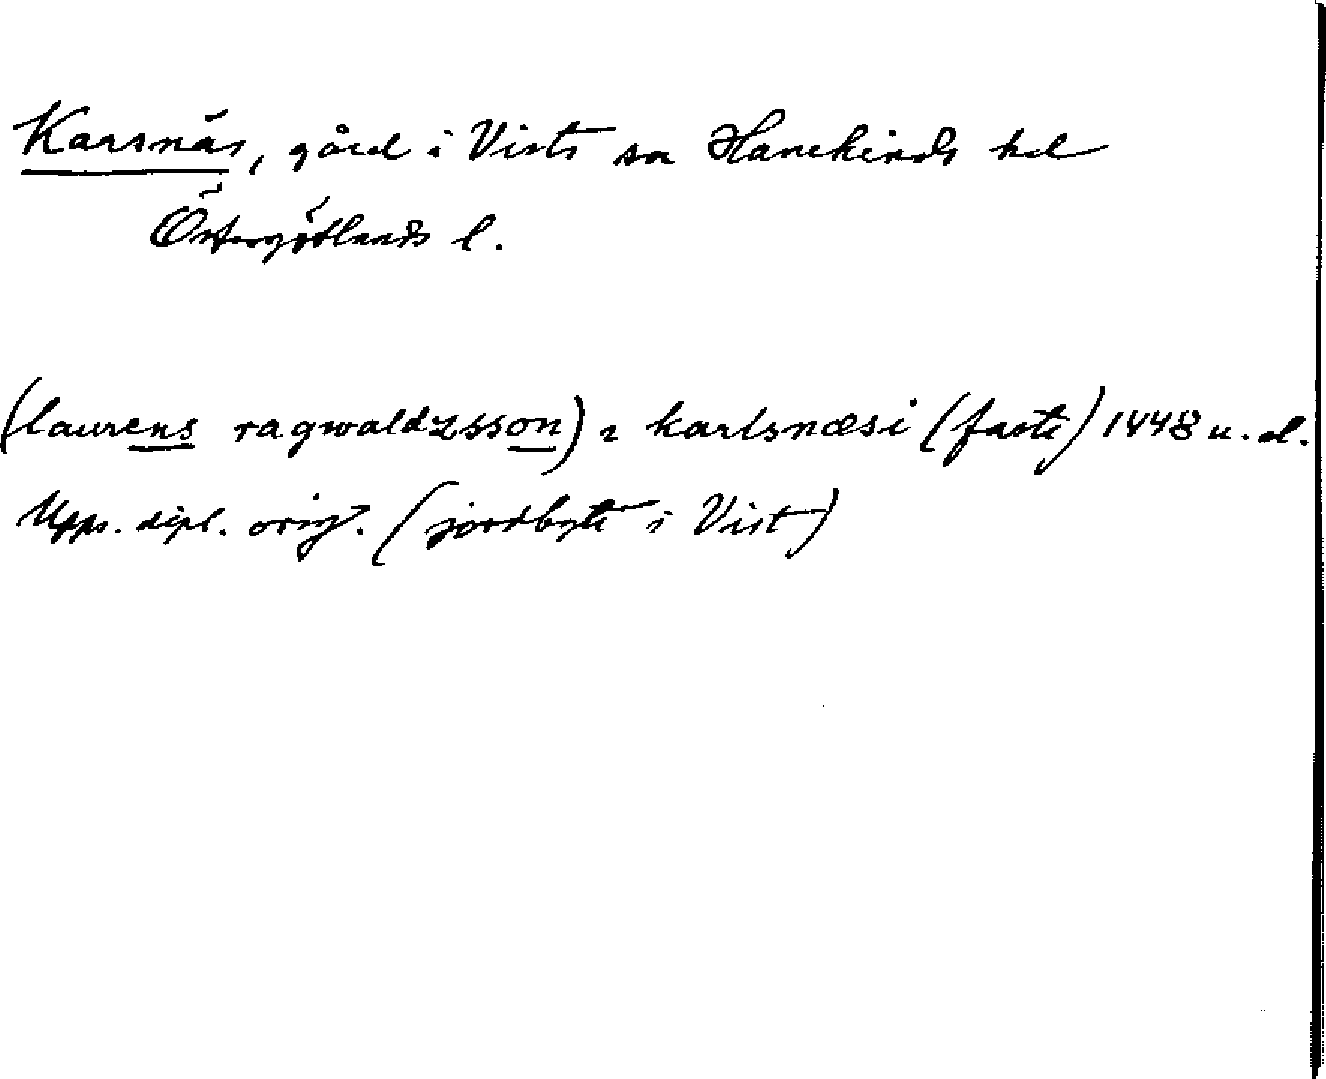 Karsnäs, gård i Vists sn Hanekinds hd
Östergötlands l.
(laurens ragwaldzsson) i karlsnæsi (faste) 1448 u. d.
Upps. dipl. orig. (jordbyte i Vist)